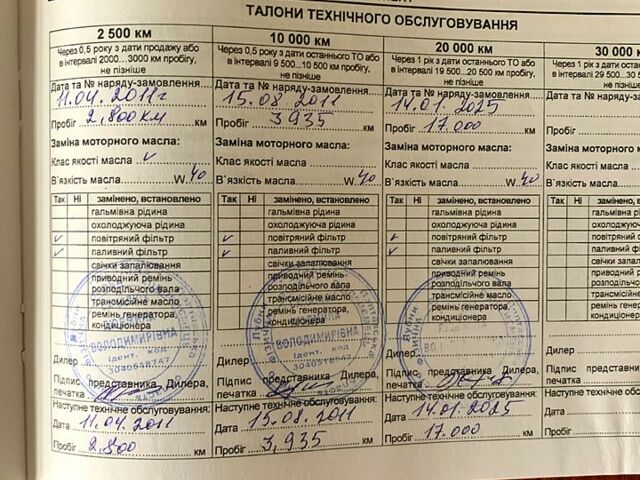 ТАЛОНИ ТЕХНІЧНОГО ОБСЛУГОВУВАННЯ
2 500 км
Через 0,5 року з дати продажу або
в інтервалі 2000…3000 км пробігу,
не пізніше
Дата та № наряду-замовлення
11.04.2011г
Пробіг 2,800 км км
Заміна моторного масла:
Клас якості масла ✓
В`язкість масла W 40
Так Ні замінено, встановлено
гальмівна рідина
охолоджуюча рідина
✓ повітряний фільтр
✓ паливний фільтр
свічки запалювання
приводний ремінь
розподільчого вала
трансмісійне масло
ремінь генератора,
кондиціонера
ВОЛОДИМИРІВНА
Ідент. код
Дилер
Підпис представника Дилера,
печатка
Наступне технічне обслуговування:
Дата 11.04.2011
Пробіг 2.800 км
10 000 км
Через 0,5 року з дати останнього ТО або
в інтервалі 9 500...10 500 км пробігу,
не пізніше
Дата та № наряду-замовлення
15.08.2011
Пробіг 3935 км
Заміна моторного масла:
Клас якості масла
В`язкість масла W 40
Так Ні замінено, встановлено
гальмівна рідина
охолоджуюча рідина
✓ повітряний фільтр
✓ паливний фільтр
свічки запалювання
приводний ремінь
розподільчого вала
трансмісійне масло
ремінь генератора,
кондиціонера
ВОЛОДИМИРІВНА
Ідент. код
Дилер
Підпис представника Дилера,
печатка
Наступне технічне обслуговування:
Дата 15.08.2011
Пробіг 3,935 км
20 000 км
Через 1 рік з дати останнього ТО або
в інтервалі 19 500...20 500 км пробігу,
не пізніше
Дата та № наряду-замовлення
14.01.2025
Пробіг 17.000 км
Заміна моторного масла:
Клас якості масла
В`язкість масла W 40
Так Ні замінено, встановлено
гальмівна рідина
охолоджуюча рідина
✓ повітряний фільтр
✓ паливний фільтр
свічки запалювання
приводний ремінь
розподільчого вала
трансмісійне масло
ремінь генератора,
кондиціонера
Дилер
Підпис представника Дилера,
печатка
Наступне технічне обслуговування:
Дата 14.01.2025
Пробіг 17.000 км
30 000
Через 1 рік з дати
в інтервалі 29 500
не пі
Дата та № наряду
Пробіг
Заміна моторного
Клас якості масла
В`язкість масла
Так Ні замінен
гальмів
охолод
повітря
паливн
свічки
привод
розпод
трансм
ремінь
кондиц
Дилер
Підпис пред
печатка
Наступне техн
Дата
Пробіг